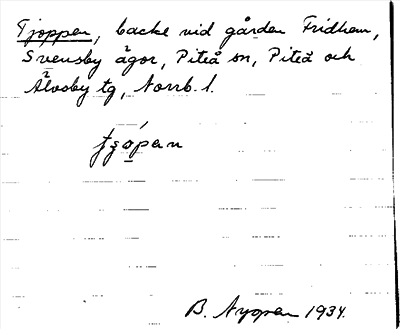 Tjoppen, backe vid gården Fridhem,
Svensby ägor, Piteå sn, Piteå och
Älvsby tg, Norrb. l.
B. 1934.